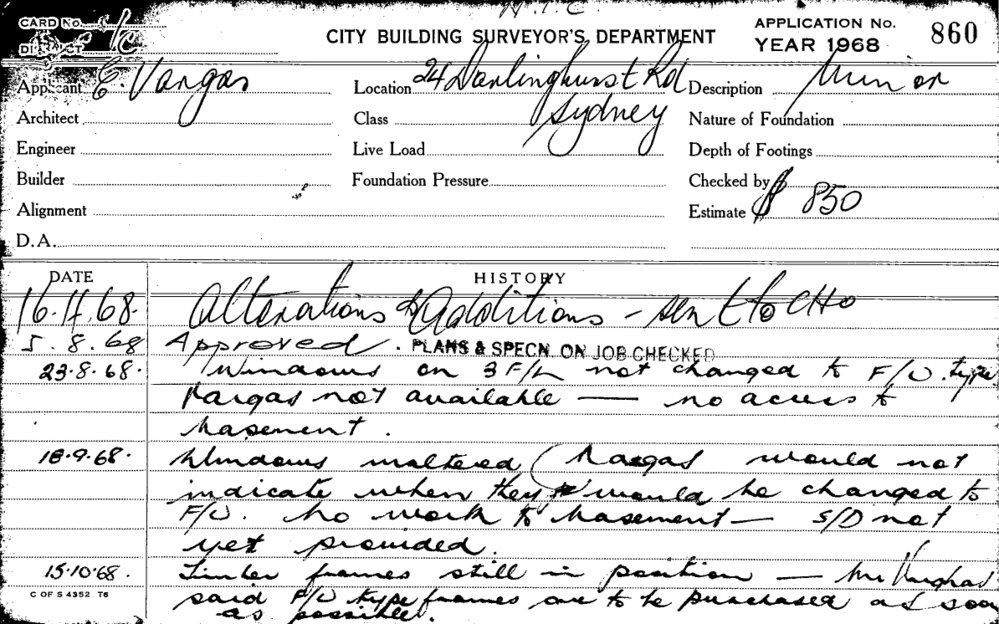 CARD No. S/C
DISTRICT
CITY BUILDING SURVEYOR'S DEPARTMENT
APPLICATION No.
YEAR 1968
860
Applicant E. Vargas
Location 24 Darlinghurst Rd
Sydney
Description Minor
Architect
Class
Nature of Foundation
Engineer
Live Load
Depth of Footings
Builder
Foundation Pressure
Checked by
Alignment
Estimate $ 850
D.A.
DATE
HISTORY
16.4.68. Alterations & Additions - sent to CHO
5.8.68 Approved. PLANS & SPECN. ON JOB CHECKED
23.8.68. Windows on 3 F/L not changed to F/U. type
Vargas not available — no access to
basement.
18.9.68. Windows unaltered (Vargas would not
indicate when they would be changed to
F/U. No work to basement — S/D not
yet provided.
15.10.68. Timber frames still in position — Mr Varghas
said F/U type frames are to be purchased as soon
as possible.
C OF S 4352 T6